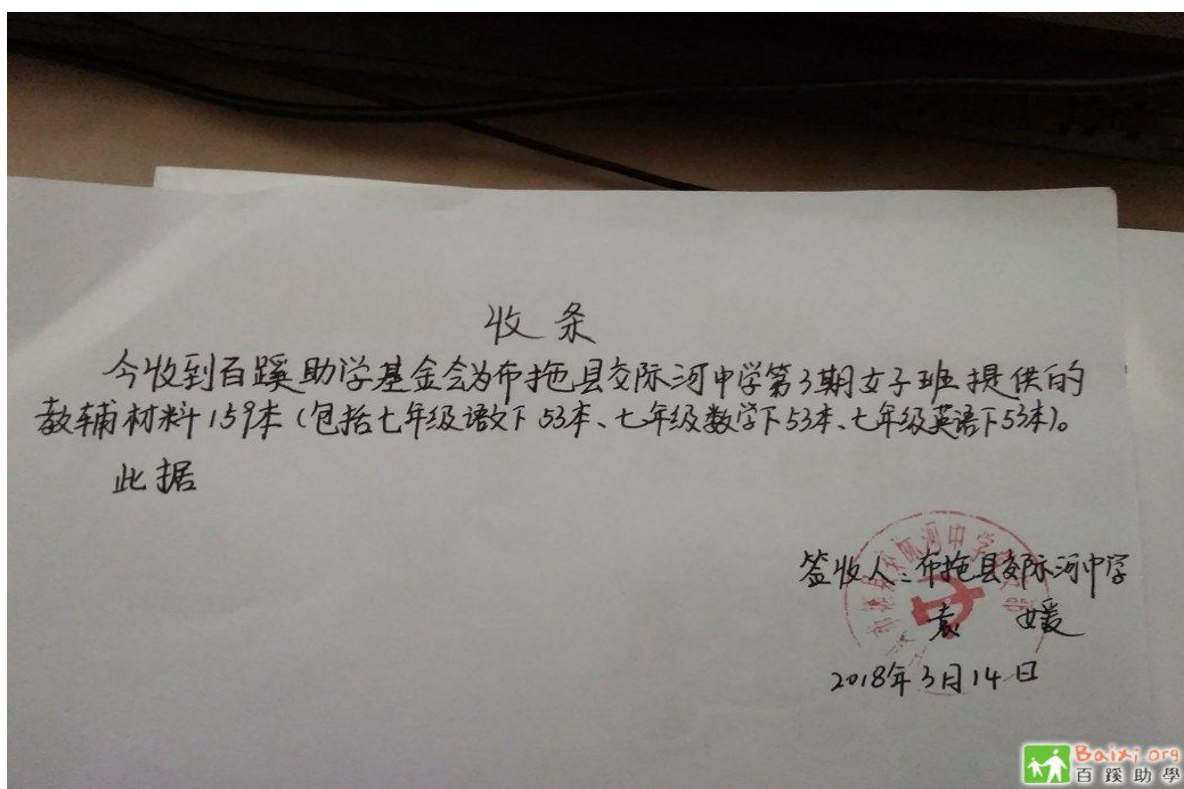 收条
今收到百蹊助学基金会为布拖县交际河中学第3期女子班提供的
教辅材料159本(包括七年级语文下53本、七年级数学下53本、七年级英语下53本)。
此据
签收人:布拖县交际河中学
袁 媛
2018年3月14日
Baixi.org
百蹊助學